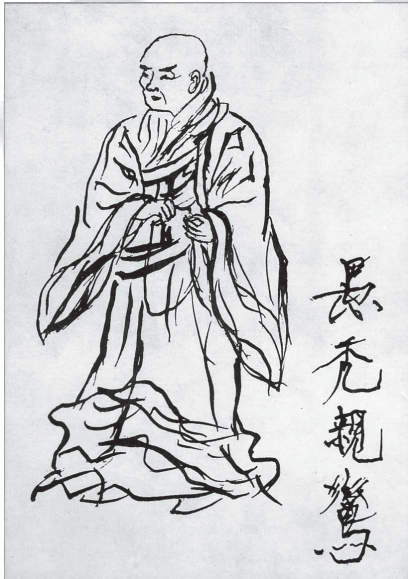 愚禿親鸞